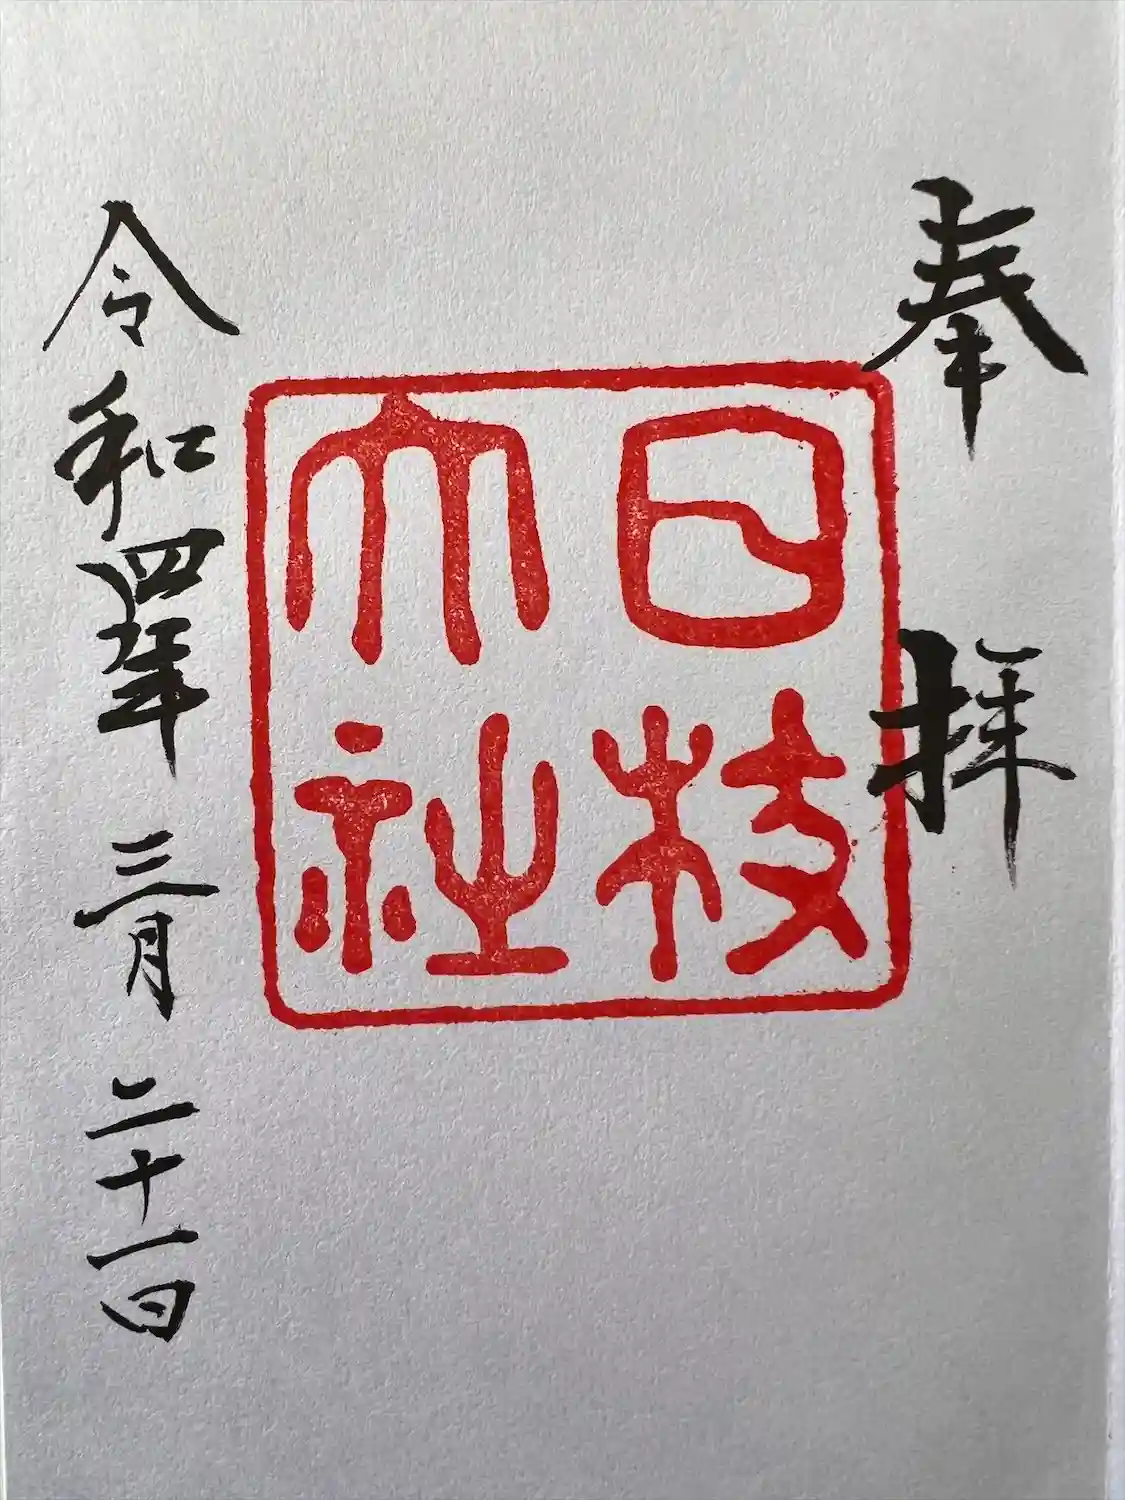 奉拝
日枝
大社
令和四年三月二十一日